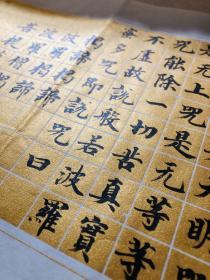 大明
是无上咒是无等等
咒能除一切苦真實
不虛故說般若波羅
多咒即說咒曰
揭諦揭諦
波羅揭諦